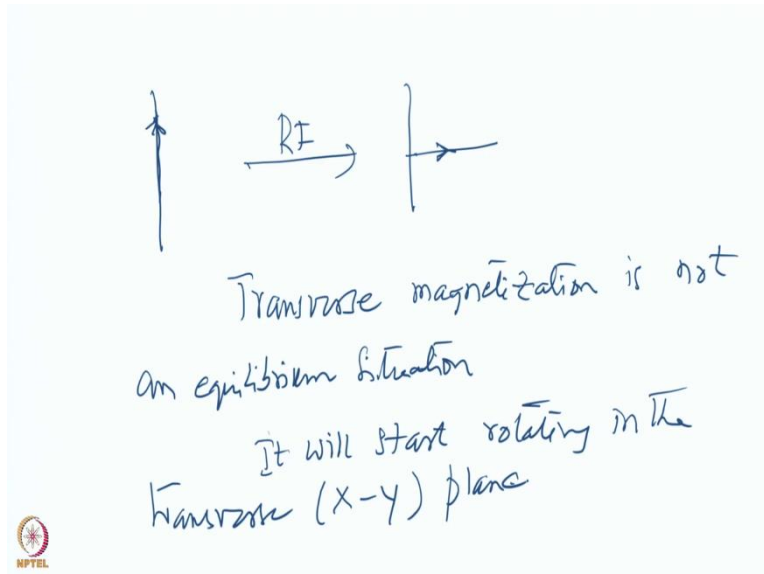 RF
Transverse magnetization is not
an equilibrium Situation
It will start rotating in the
transverse (x-y) plane
NPTEL